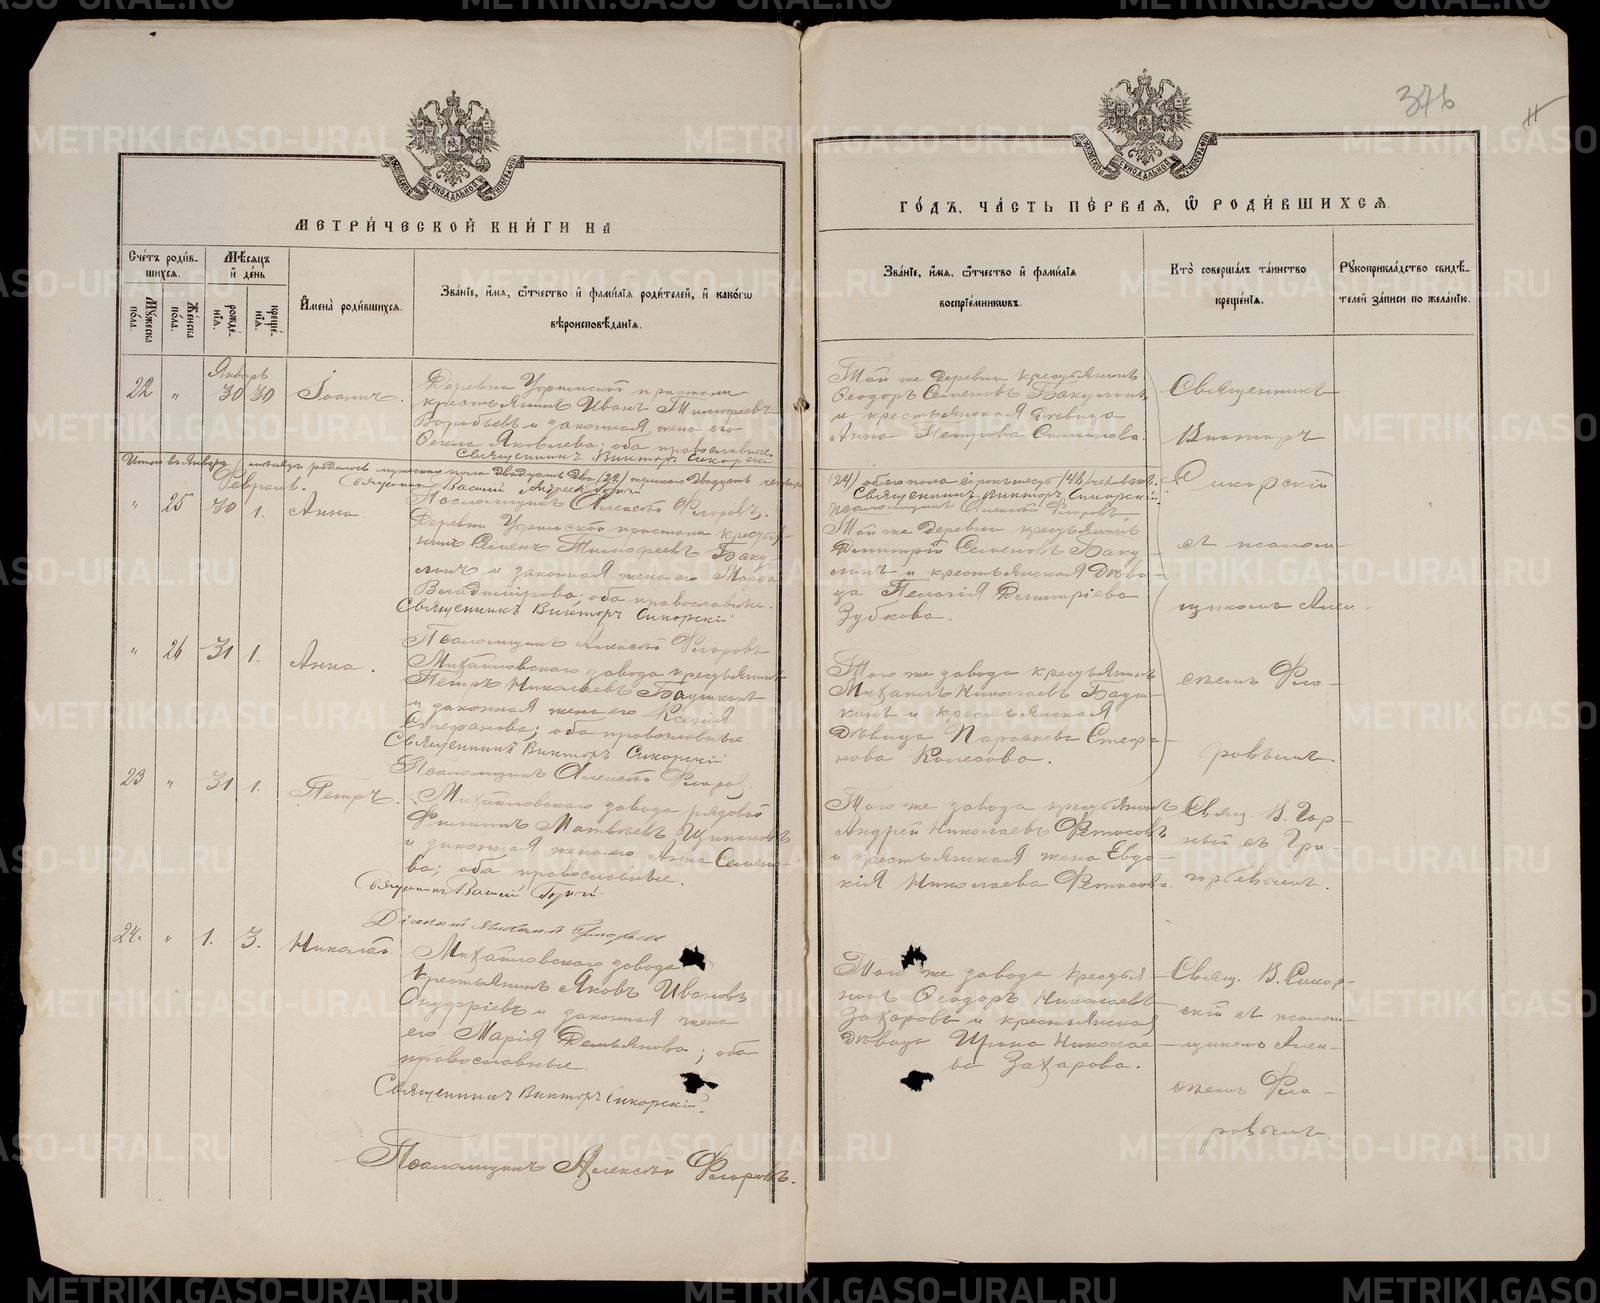 376
МЕТРИ́ЧЕСКОЙ КНИ́ГИ НА
ГО́ДЪ, ЧА́СТЬ ПЕ́РВАЯ, Ѡ РОДИ́ВШИХСЯ.
Сче́тъ роди́в-
шихся.
Мѣ́сяцъ
и де́нь
Му́жеска по́ла.
Же́нска по́ла.
рожде́нїя.
креще́нїя.
И́мена̀ роди́вшихся.
Зва́нїе, и́мя, ѻ́тчество и фами́лїя роди́телей, и како́гѡ
вѣроисповѣ́данїя.
Зва́нїе, и́мя, ѻ́тчество и фами́лїя
воспрїе́мникѡвъ.
Кто̀ соверша́лъ та́инство
креще́нїя.
Рꙋкоприкла́дство свидѣ́-
телей за́писи по жела́нїю.
Январь
22 „ 30 30 Іоаннъ.
Деревни Уфимской пристани
крестьянинъ Иванъ Тимофеевъ
Воробьевъ и законная жена его
Яковлева; оба православные.
Священникъ Викторъ Сикорскій
Той же деревни крестьянинъ
Ѳеодоръ Семеновъ Бакулинъ
и крестьянская дѣвица
Анна Петрова
Священникъ
Викторъ
Сикорскій
Итого въ Январѣ мѣсяцѣ родилось мужескаго пола двадцать два (22) женскаго двадцать четыре
(24) обоего пола сорокъ шесть (46) человѣкъ.
Священникъ Василій
Священникъ Викторъ Сикорскій
Псаломщикъ Алексѣй Флоровъ
Февраль.
„ 25 30 1. Анна
Псаломщикъ Алексѣй Флоровъ.
Деревни Уфимской пристани крестья-
нинъ Семенъ Тимофеевъ Баку
линъ и законная жена его Марѳа
Владимірова; оба православные.
Священникъ Викторъ Сикорскій
Той же деревни крестьянинъ
Димитрій Семеновъ Баку
линъ и крестьянская дѣви-
ца Пелагія Димитріева
Зубкова.
съ псалом-
щикомъ Алек-
сѣемъ Фло-
ровымъ
„ 26 31 1. Анна.
Псаломщикъ Алексѣй Флоровъ
Михайловскаго завода крестьянинъ
Петръ Николаевъ
и законная жена его Ксенія
Стефанова; оба православные
Священникъ Викторъ Сикорскій
Того же завода крестьянинъ
Михаилъ Николаевъ
и крестьянская
дѣвица Параскева Стефа-
нова Колесова.
23 „ 31 1. Петръ.
Псаломщикъ Алексѣй Флоровъ
Михайловскаго завода рядовой
Филиппъ Матвѣевъ
и законная жена его Анна Семено-
ва; оба православные.
Священникъ Василій
Того же завода крестьянинъ
Андрей Николаевъ Ѳетисовъ
и крестьянская жена Евдо-
кія Николаева Ѳетисова.
Свящ. В. Гор-
ный съ Гри-
горьевымъ.
24. „ 1. 3. Николай
Діаконъ
Михайловскаго завода
крестьянинъ Яковъ Ивановъ
Онуфріевъ и законная жена
его Марія Демьянова; оба
православные.
Священникъ Викторъ Сикорскій.
Псаломщикъ Алексѣй Флоровъ.
Того же завода крестья-
нинъ Ѳеодоръ Николаевъ
Захаровъ и крестьянская
дѣвица Ирина Николае-
ва Захарова.
Свящ. В. Сикор-
скій съ псалом-
щикомъ Алек-
сѣемъ Фло-
ровымъ.
METRIKI.GASO-URAL.RU